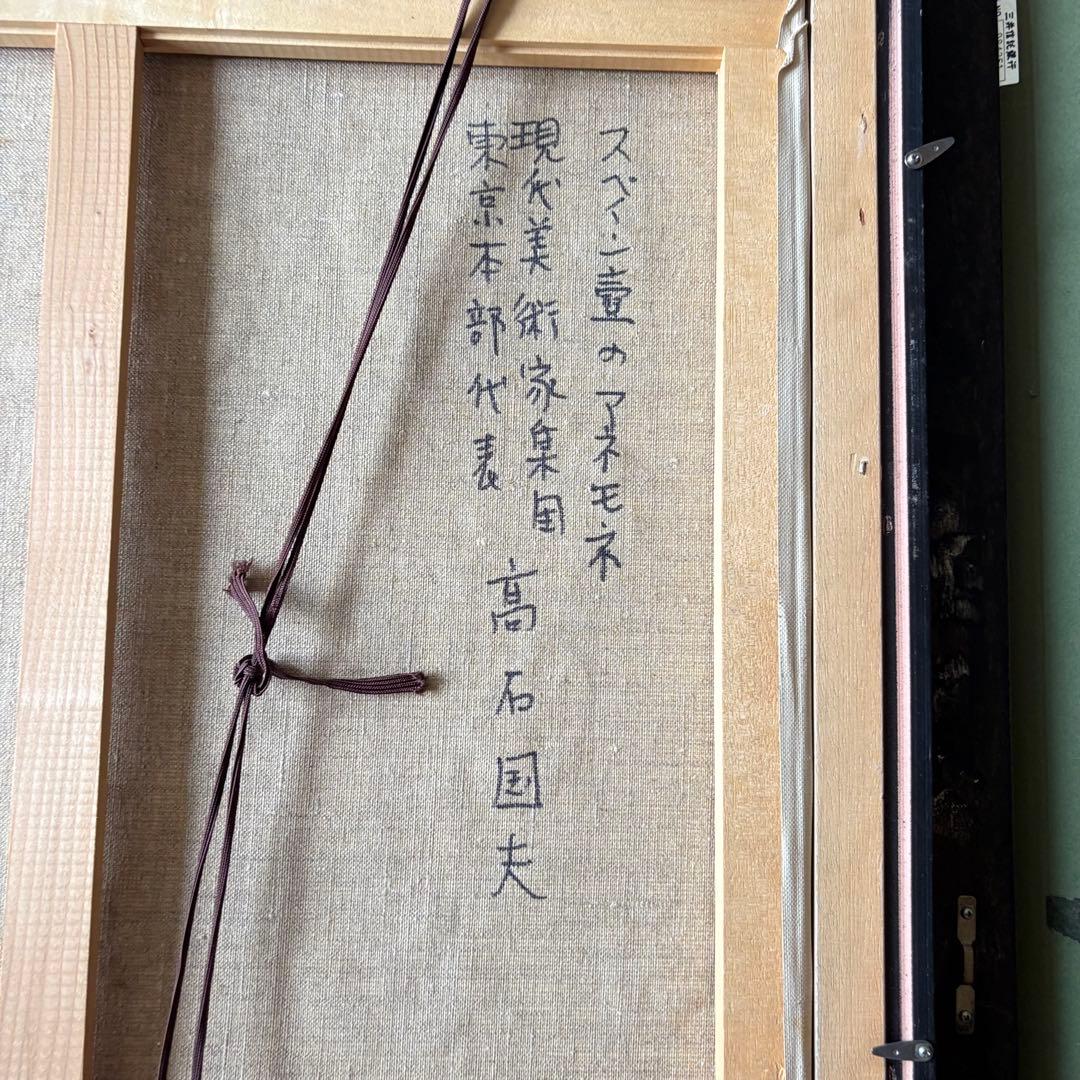 スペイン壷のアネモネ
現代美術家集団
東京本部代表
高石国夫